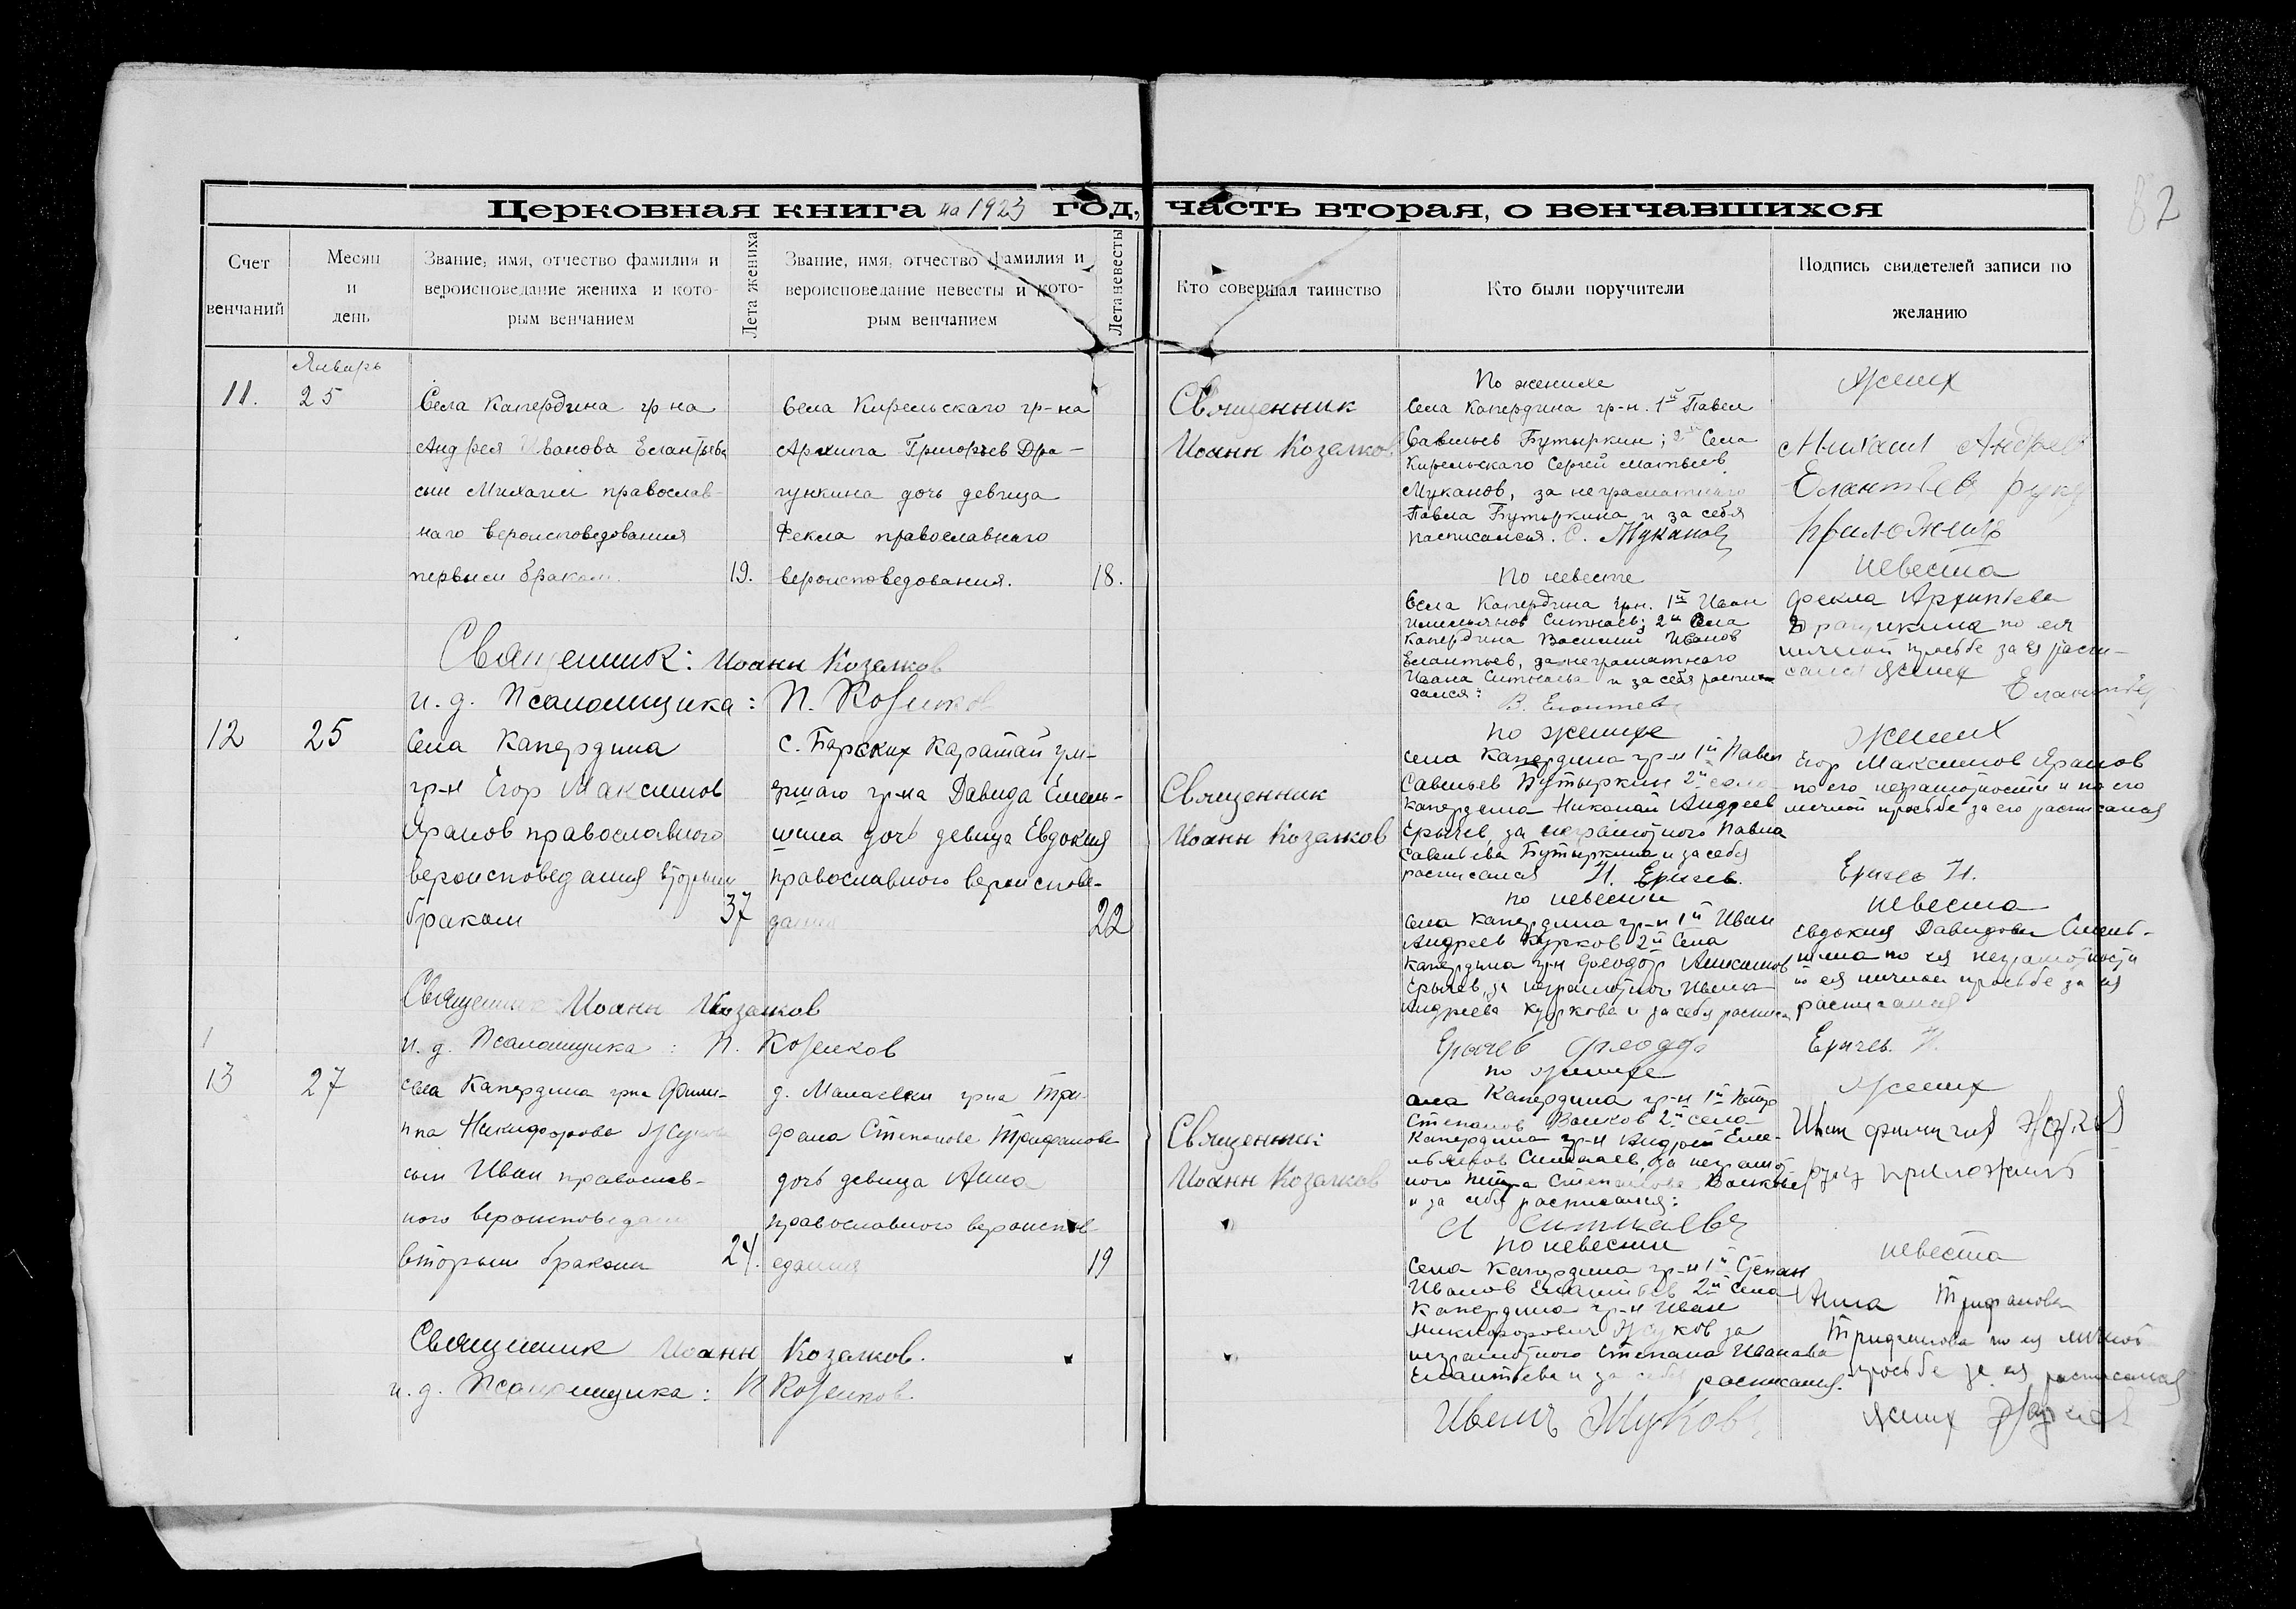 82
Церковная книга на 1923 год, часть вторая, о венчавшихся
Счет венчаний
Месяц и день
Звание, имя, отчество фамилия и
вероисповедание жениха и кото-
рым венчанием
Лета жениха
Звание, имя, отчество фамилия и
вероисповедание невесты и кото-
рым венчанием
Лета невесты
Кто совершал таинство
Кто были поручители
Подпись свидетелей записи по
желанию
Январь
11.
25
Села Капердина гр-на
Андрея Иванова Елантьева
сын Михаил православ-
наго вероисповедования
первым браком.
19.
Села Кирельскаго гр-на
Архипа Григорьев Дра-
гункина дочь девица
Фекла православнаго
вероисповедования.
18.
Священник
Иоанн Козалков
По женихе
Села Капердина гр-н. 1й Павел
Савельев Бутыркин; 2й Села
Кирельскаго Сергей Матвеев
Муканов, за неграматнаго
Павла Бутыркина и за себя
расписался. С. Муканов
По невесте
Села Капердина грн. 1й Иван
Имельянов Ситнаев; 2й Села
Капердина Василий Иванов
Елантьев, за неграматнаго
Ивана Ситнаева и за себя распи
сался:
В. Елантев
Жених
Михаил Андреев
Елантьев руку
приложил
Невеста
Фекла Архипьева
Драгункина по ея
личной просьбе за ея распи-
сался жених
Елантьев
Священник: Иоанн Козалков
и. д. Псаломщика: П. Козлков
12
25
Села Капердина
гр-н Егор Максимов
Ярапов православного
вероисповедания вторым
браком
37
с. Барских Каратай
гр-на Давида
дочь девица Евдокия
православного вероиспове-
дания
22
Священник
Иоанн Козалков
по женихе
села Капердина гр-н 1й Павел
Савельев Бутыркин 2й села
Капердина Николай Андреев
Ерычев, за неграмотного Павла
Савельева Бутыркина и за себя
расписался Н. Еричев.
по невесте
Села Капердина гр-н 1й Иван
Андреев Курков 2й Села
Капердина гр-н Феодор
Ерычев, за неграмотного Ивана
Андреева Куркова и за себя расписа
Ерычев Феодор
жених
Егор Максимов Ярапов
по его неграмотности и по его
личной просьбе за его расписался
Еричев Н.
невеста
Евдокия Давидова
по ея неграмотности
по ея личной просьбе за ея
расписался
Еричев. Н.
Священник Иоанн Козалков
и. д. Псаломщика: П. Козлков
13
27
села Капердина грна Фили-
ппа Никифорова Жукова
сын Иван православ-
ного вероисповедания
вторым браком
24.
д. Малаевки грна Три-
фана Степанова Трифанова
дочь девица Анна
православного вероиспов-
едания
19
Священник
Иоанн Козалков
по женихе
села Капердина гр-н 1й Петр
Степанов Волков 2й села
Капердина гр-н Андрей Еме-
льянов Ситнаев, за неграмот-
ного Петра Степанова Волкова
и за себя расписался:
А Ситнаевъ
по невесте
Села Капердина гр-н 1й Степан
Иванов Елантьев 2й Села
Капердина гр-н Иван
Никифорович Жуков за
неграмотного Степана Иванова
Елантьева и за себя расписался.
Иванъ Жуковъ
Жених
Иван Жуков
руку приложил
невеста
Анна Трифанова
Трифанова по ея личной
просьбе за ея расписался
жених Жуков
Священник Иоанн Козалков.
и. д. Псаломщика: П Козлков.